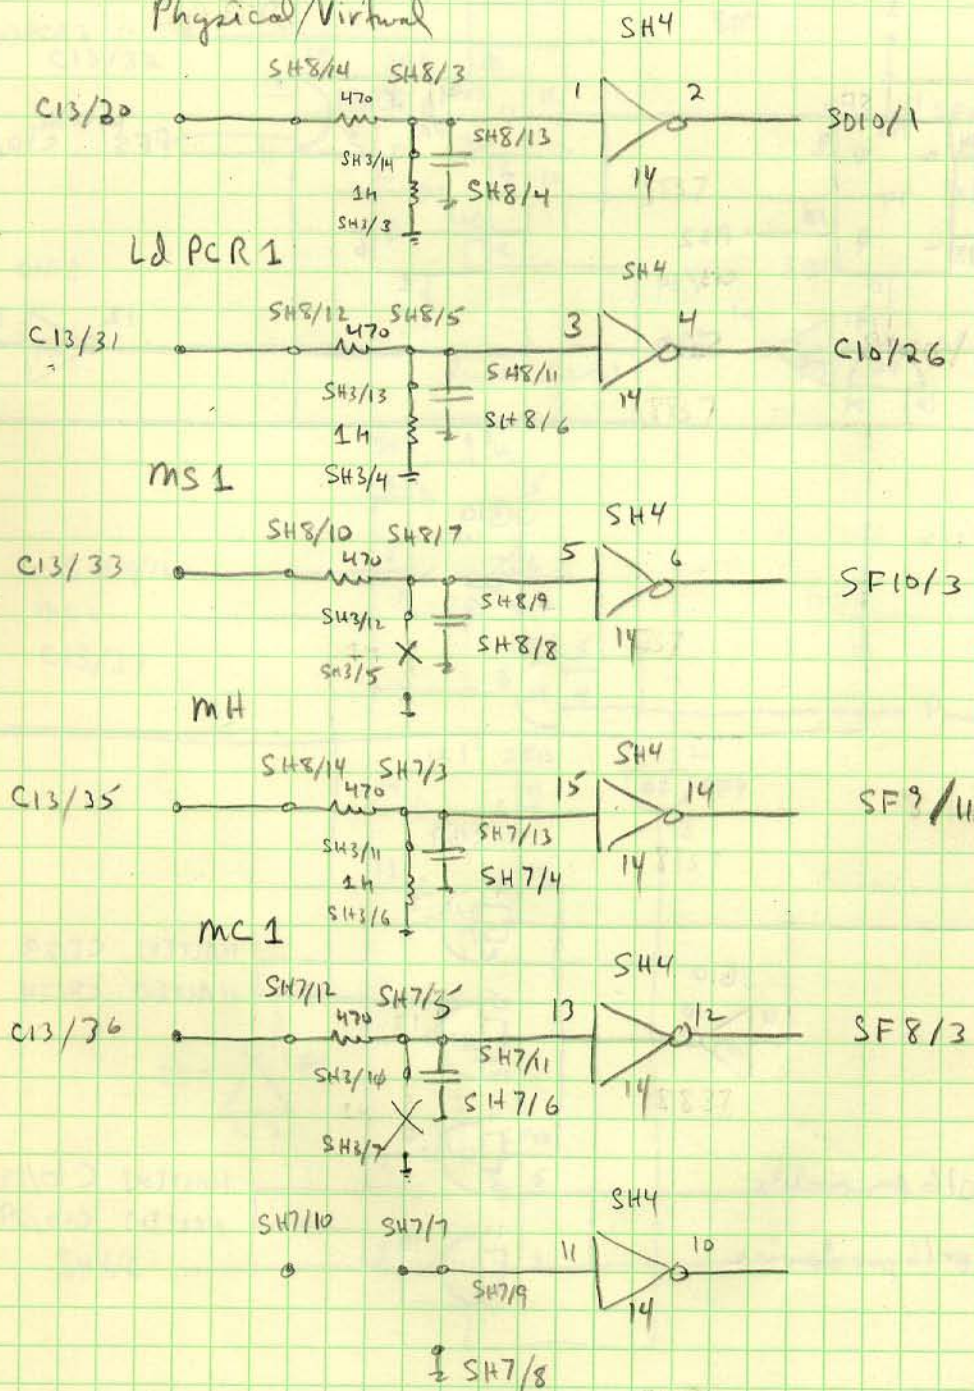 Physical/Virtual
SH4
SH8/14 SH8/3
C13/30 470 1 2 SD10/1
SH8/13
SH3/14
1K SH8/4 14
SH3/3
Ld PCR 1
SH4
SH8/12 SH8/5
C13/31 470 3 4 C10/26
SH8/11
SH3/13
1K SH8/6 14
SH3/4
MS 1
SH4
SH8/10 SH8/7
C13/33 470 5 6 SF10/3
SH8/9
SH3/12 SH8/8 14
SH3/5
MH
SH4
SH8/14 SH7/3
C13/35 470 15 14 SF9/11
SH7/13
SH3/11
1K SH7/4 14
SH3/6
MC 1
SH4
SH7/12 SH7/5
C13/36 470 13 12 SF8/3
SH7/11
SH3/10 SH7/6 14
SH3/7
SH4
SH7/10 SH7/7
11 10
SH7/9 14
SH7/8